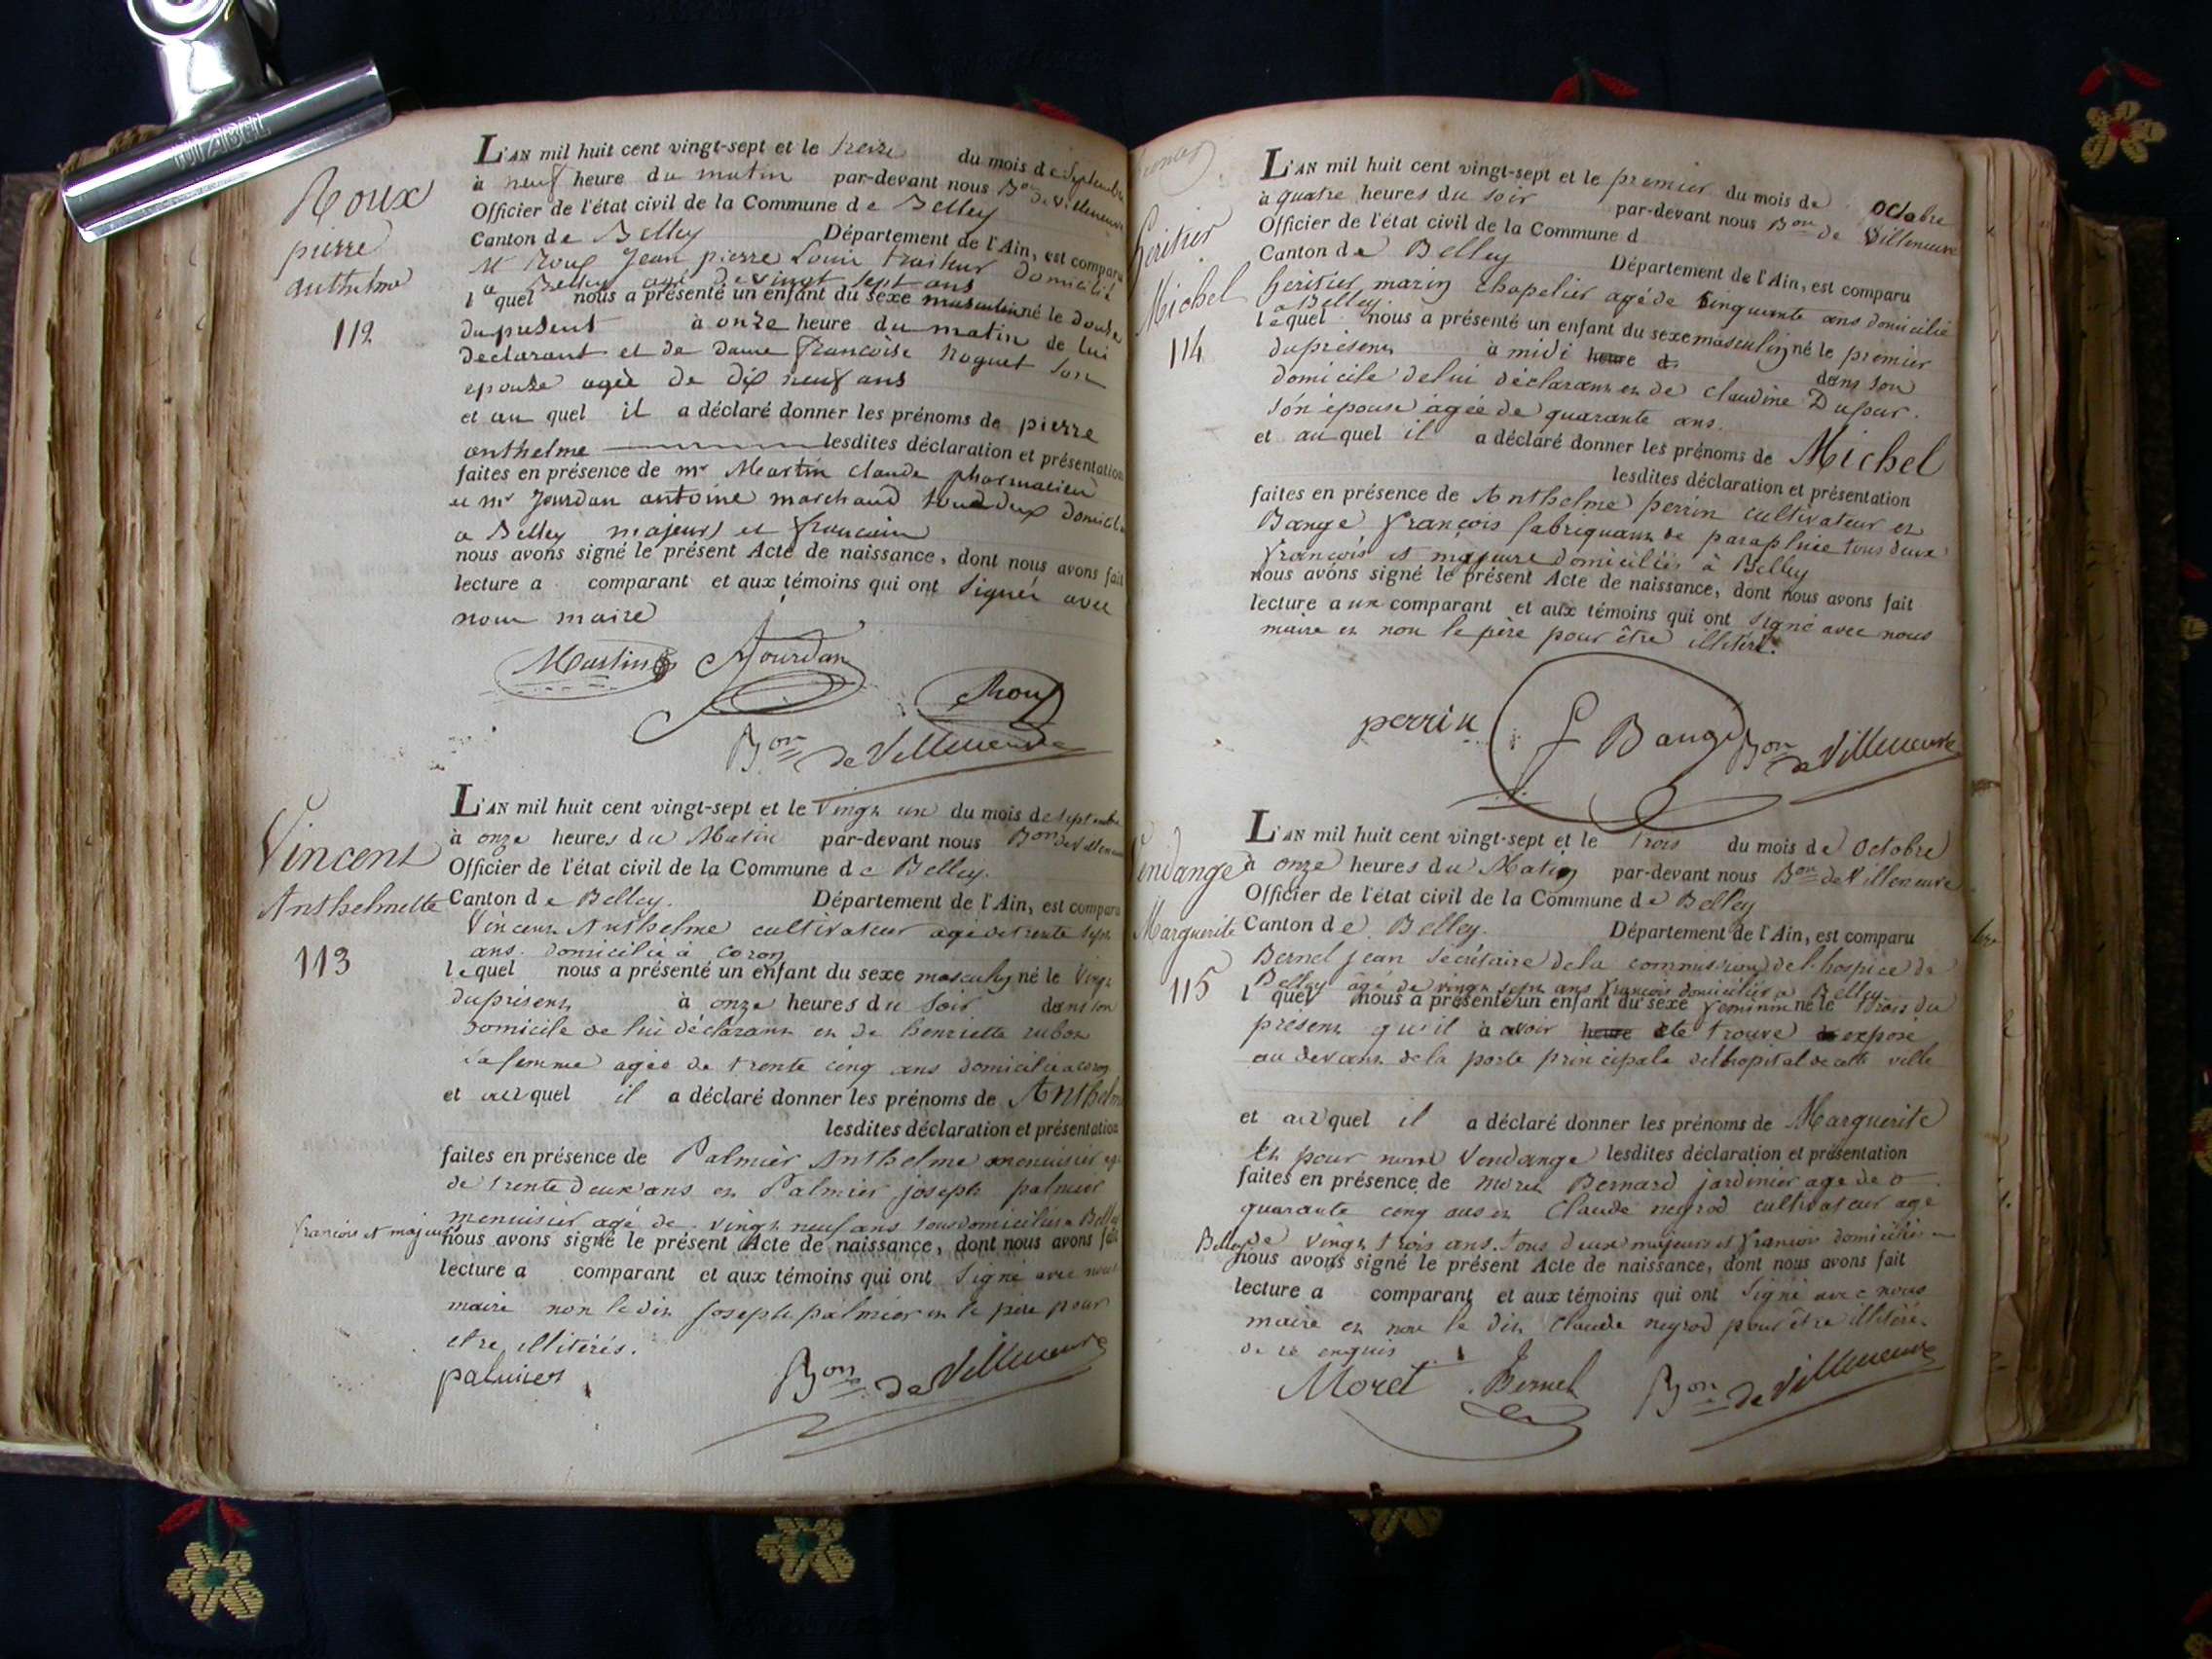 Roux
pierre
anthelme
112
L'AN mil huit cent vingt-sept et le treize du mois de Septembre
à neuf heure du matin par-devant nous Bon de Villeneuve
Officier de l'état civil de la Commune de Belley
Canton de Belley Département de l'Ain, est comparu
Mr Roux Jean pierre Louis traiteur Domicilié
a Belley agé de vingt sept ans
lequel nous a présenté un enfant du sexe masculin né le douze
du present à onze heure du matin de lui
declarant et de dame francoise Roguet son
epouse ageè de dix neuf ans
et au quel il a déclaré donner les prénoms de pierre
anthelme lesdites déclaration et présentation
faites en présence de mr Martin claude pharmacien
et mr Jourdan antoine marchand tous deux domicilié
a Belley majeurs et francais
nous avons signé le présent Acte de naissance, dont nous avons fait
lecture a comparant et aux témoins qui ont signés avec
nous maire
Martin Jourdan
Roux
Bon de Villeneuve
Vincent
Anthelmette
113
L'AN mil huit cent vingt-sept et le vingt un du mois de septembre
à onze heures du Matin par-devant nous Bon de Villeneuve
Officier de l'état civil de la Commune de Belley.
Canton de Belley. Département de l'Ain, est comparu
Vincent Anthelme cultivateur agé de trente sept
ans. domicilié à coron
lequel nous a présenté un enfant du sexe masculin né le vingt
du présent à onze heures du soir dans son
domicile de lui déclarant et de henriette
sa femme agée de trente cinq ans domicilié a coron
et auquel il a déclaré donner les prénoms de Anthelm
lesdites déclaration et présentation
faites en présence de Palmier Anthelme menuisier agé
de trente deux ans et Palmier joseph palmier
menuisier agé de vingt neuf ans tous domiciliés a Belley
francois et majeurs
nous avons signé le présent Acte de naissance, dont nous avons fait
lecture a comparant et aux témoins qui ont signé avec nous
maire non le dit joseph palmier et le père pour
etre illitérés.
palmier Bon de Villeneuve
heritier
Michel
114
L'AN mil huit cent vingt-sept et le premier du mois de octobre
à quatre heures du soir par-devant nous Bon de Villeneuve
Officier de l'état civil de la Commune d
Canton de Belley Département de l'Ain, est comparu
heritier marin chapelier agé de cinquante ans domicilié
a Belley.
lequel nous a présenté un enfant du sexe masculin né le premier
du présent à midi heure d dans son
domicile de lui déclarant et de claudine Dufour.
son épouse agée de quarante ans.
et auquel il a déclaré donner les prénoms de Michel
lesdites déclaration et présentation
faites en présence de Anthelme perrin cultivateur et
Bange françois fabriquant de parapluie tous deux
francois et majeurs domiciliés à Belley
nous avons signé le présent Acte de naissance, dont nous avons fait
lecture aux comparant et aux témoins qui ont signé avec nous
maire et non le père pour être illitéré.
perrin f Bange Bon de Villeneuve
Vendange
Marguerite
115
L'AN mil huit cent vingt-sept et le trois du mois de octobre
à onze heures du Matin par-devant nous Bon de Villeneuve
Officier de l'état civil de la Commune de Belley
Canton de Belley. Département de l'Ain, est comparu
Bernel jean sécrétaire de la commission de l'hospice de
Belley agé de vingt sept ans francois domicilié a Belley
l quel nous a présenté un enfant du sexe feminin né le trois du
présent qu'il à avoir heure été trouvé exposé
au devant de la porte principale de l'hopital de cette ville
et auquel il a déclaré donner les prénoms de Marguerite
et pour nom Vendange lesdites déclaration et présentation
faites en présence de moret Bernard jardinier age de
quarante cinq ans et Claude negrod cultivateur age
de vingt trois ans. tous deux majeurs et francois domiciliés a
Belley
nous avons signé le présent Acte de naissance, dont nous avons fait
lecture a comparant et aux témoins qui ont signé avec nous
maire et non le dit claude negrod pour être illitéré.
de ce enquis
Moret Bernel Bon de Villeneuve